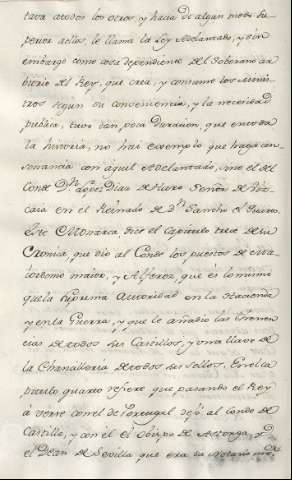 tava atodos los otros, y hacia de algun modo Su-
perior aellos, le llama la Ley Adelantado, y sin
embargo como cosa dependiente del Soberano ar-
bitrio del Rey, que crea, y consume los Minis-
tros segun su conveniencia, y la necesidad
publica, tuvo tan poca Duracion, que en toda
la historia, no hai exemplo que haga con-
sonancia con aquel Adelantado, sino el del
Conde Dn. Lopez Dias de Haro Señor de Viz-
caia en el Reinado de Dn. Sancho el Quarto.
Este Monarca, dice el Capitulo trece de su
Cronica, que dio al Conde los puestos de Ma-
iordomo maior, y Alferez, que es lo mismo
que la suprema Autoridad en la Hacienda
y en la Guerra, y que le añadio las Tenen-
cias de todos sus Castillos, y una llave de
la Chanzilleria de todos sus Sellos. En el Ca-
pitulo quarto refiere que pasando el Rey
á verse con el de Portugal dejó al Conde de
Castilla, y con el el Obispo de Astorga, y
el Dean de Sevilla que era su Notario